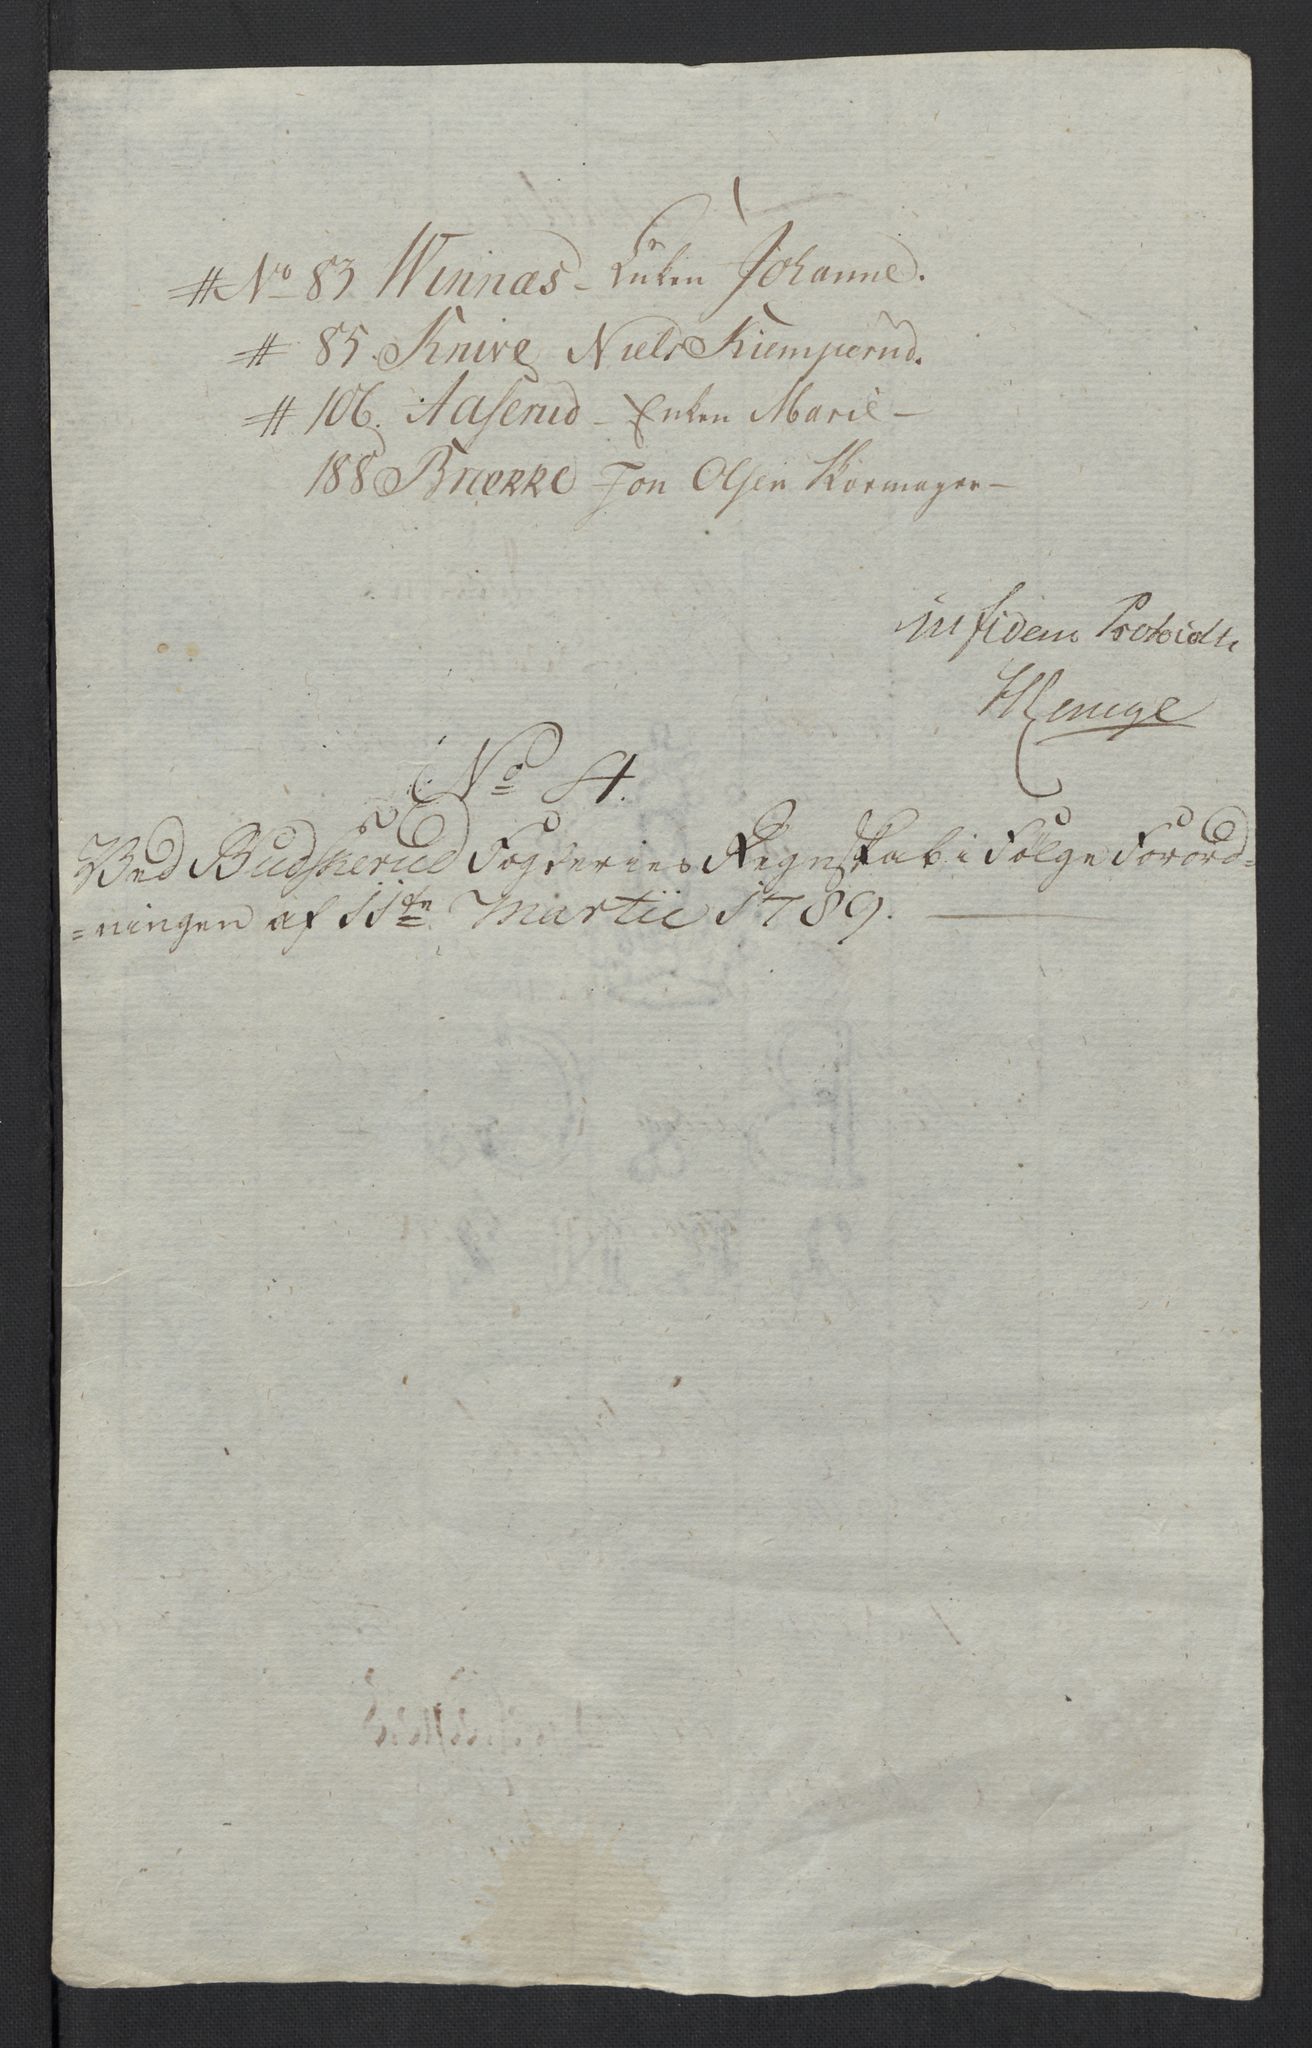 # No 83 Winnæs - Enken Johanne.
# 85. Knive Niels Kiemperud.
# 106. Aaserud - Enken Marie -
188 Brække Jon Olsen Skormager -
in fidem Protocoll
No 4.
Ved Budskerud Fogderies Regnskab i Følge Forord=
=ningen af 11te Martii 1789.